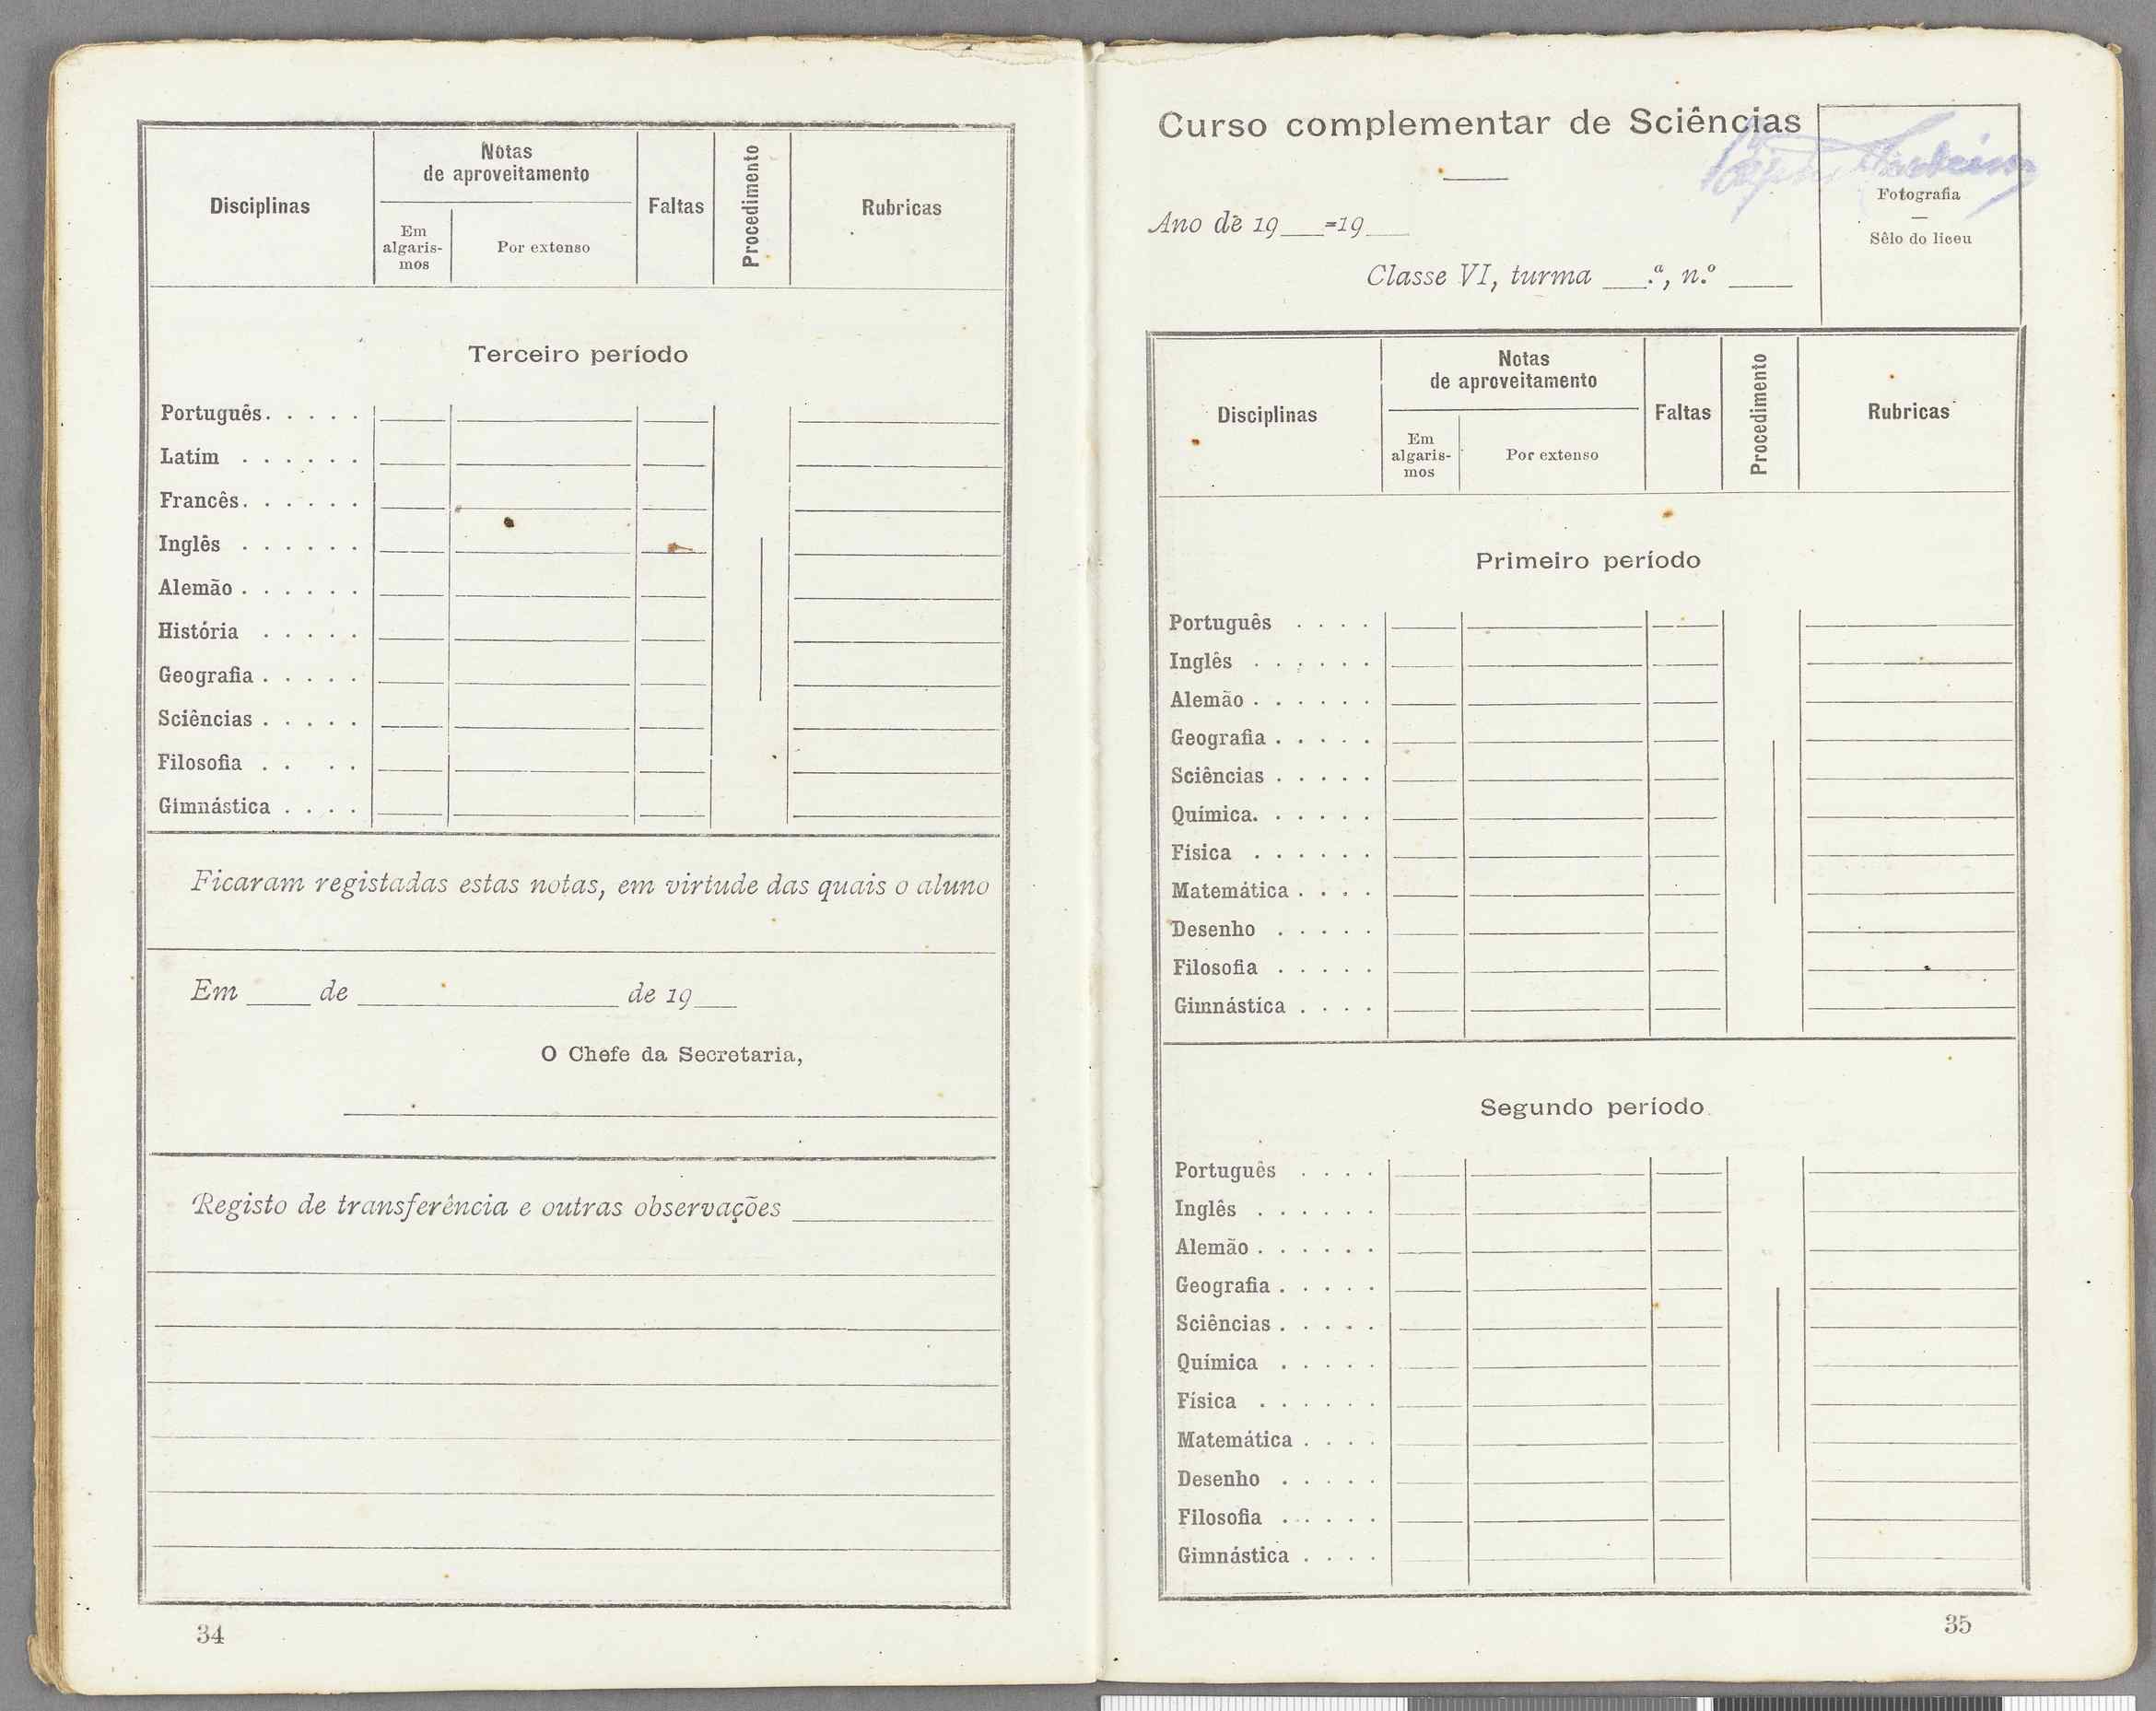 Disciplinas
Notas
de aproveitamento
Em
algaris-
mos
Por extenso
Faltas
Procedimento
Rubricas
Terceiro período
Português. . . . .
Latim . . . . . .
Francês. . . . . .
Inglês . . . . . .
Alemão . . . . . .
História . . . . .
Geografia . . . . .
Sciências . . . . .
Filosofia . . . .
Gimnástica . . . .
Ficaram registadas estas notas, em virtude das quais o aluno
Em ____ de ____ de 19__
O Chefe da Secretaria,
Registo de transferência e outras observações
34
Curso complementar de Sciências
Fotografia
—
Sêlo do liceu
Ano de 19__=19__
Classe VI, turma ___.ª, n.º ____
Disciplinas
Notas
de aproveitamento
Em
algaris-
mos
Por extenso
Faltas
Procedimento
Rubricas
Primeiro período
Português . . . .
Inglês . . . . . .
Alemão . . . . . .
Geografia . . . . .
Sciências . . . . .
Química. . . . . .
Física . . . . . .
Matemática . . . .
Desenho . . . . .
Filosofia . . . . .
Gimnástica . . . .
Segundo período
Português . . . .
Inglês . . . . . .
Alemão . . . . . .
Geografia . . . . .
Sciências . . . . .
Química . . . . .
Física . . . . . .
Matemática . . . .
Desenho . . . . .
Filosofia . . . . .
Gimnástica . . . .
35